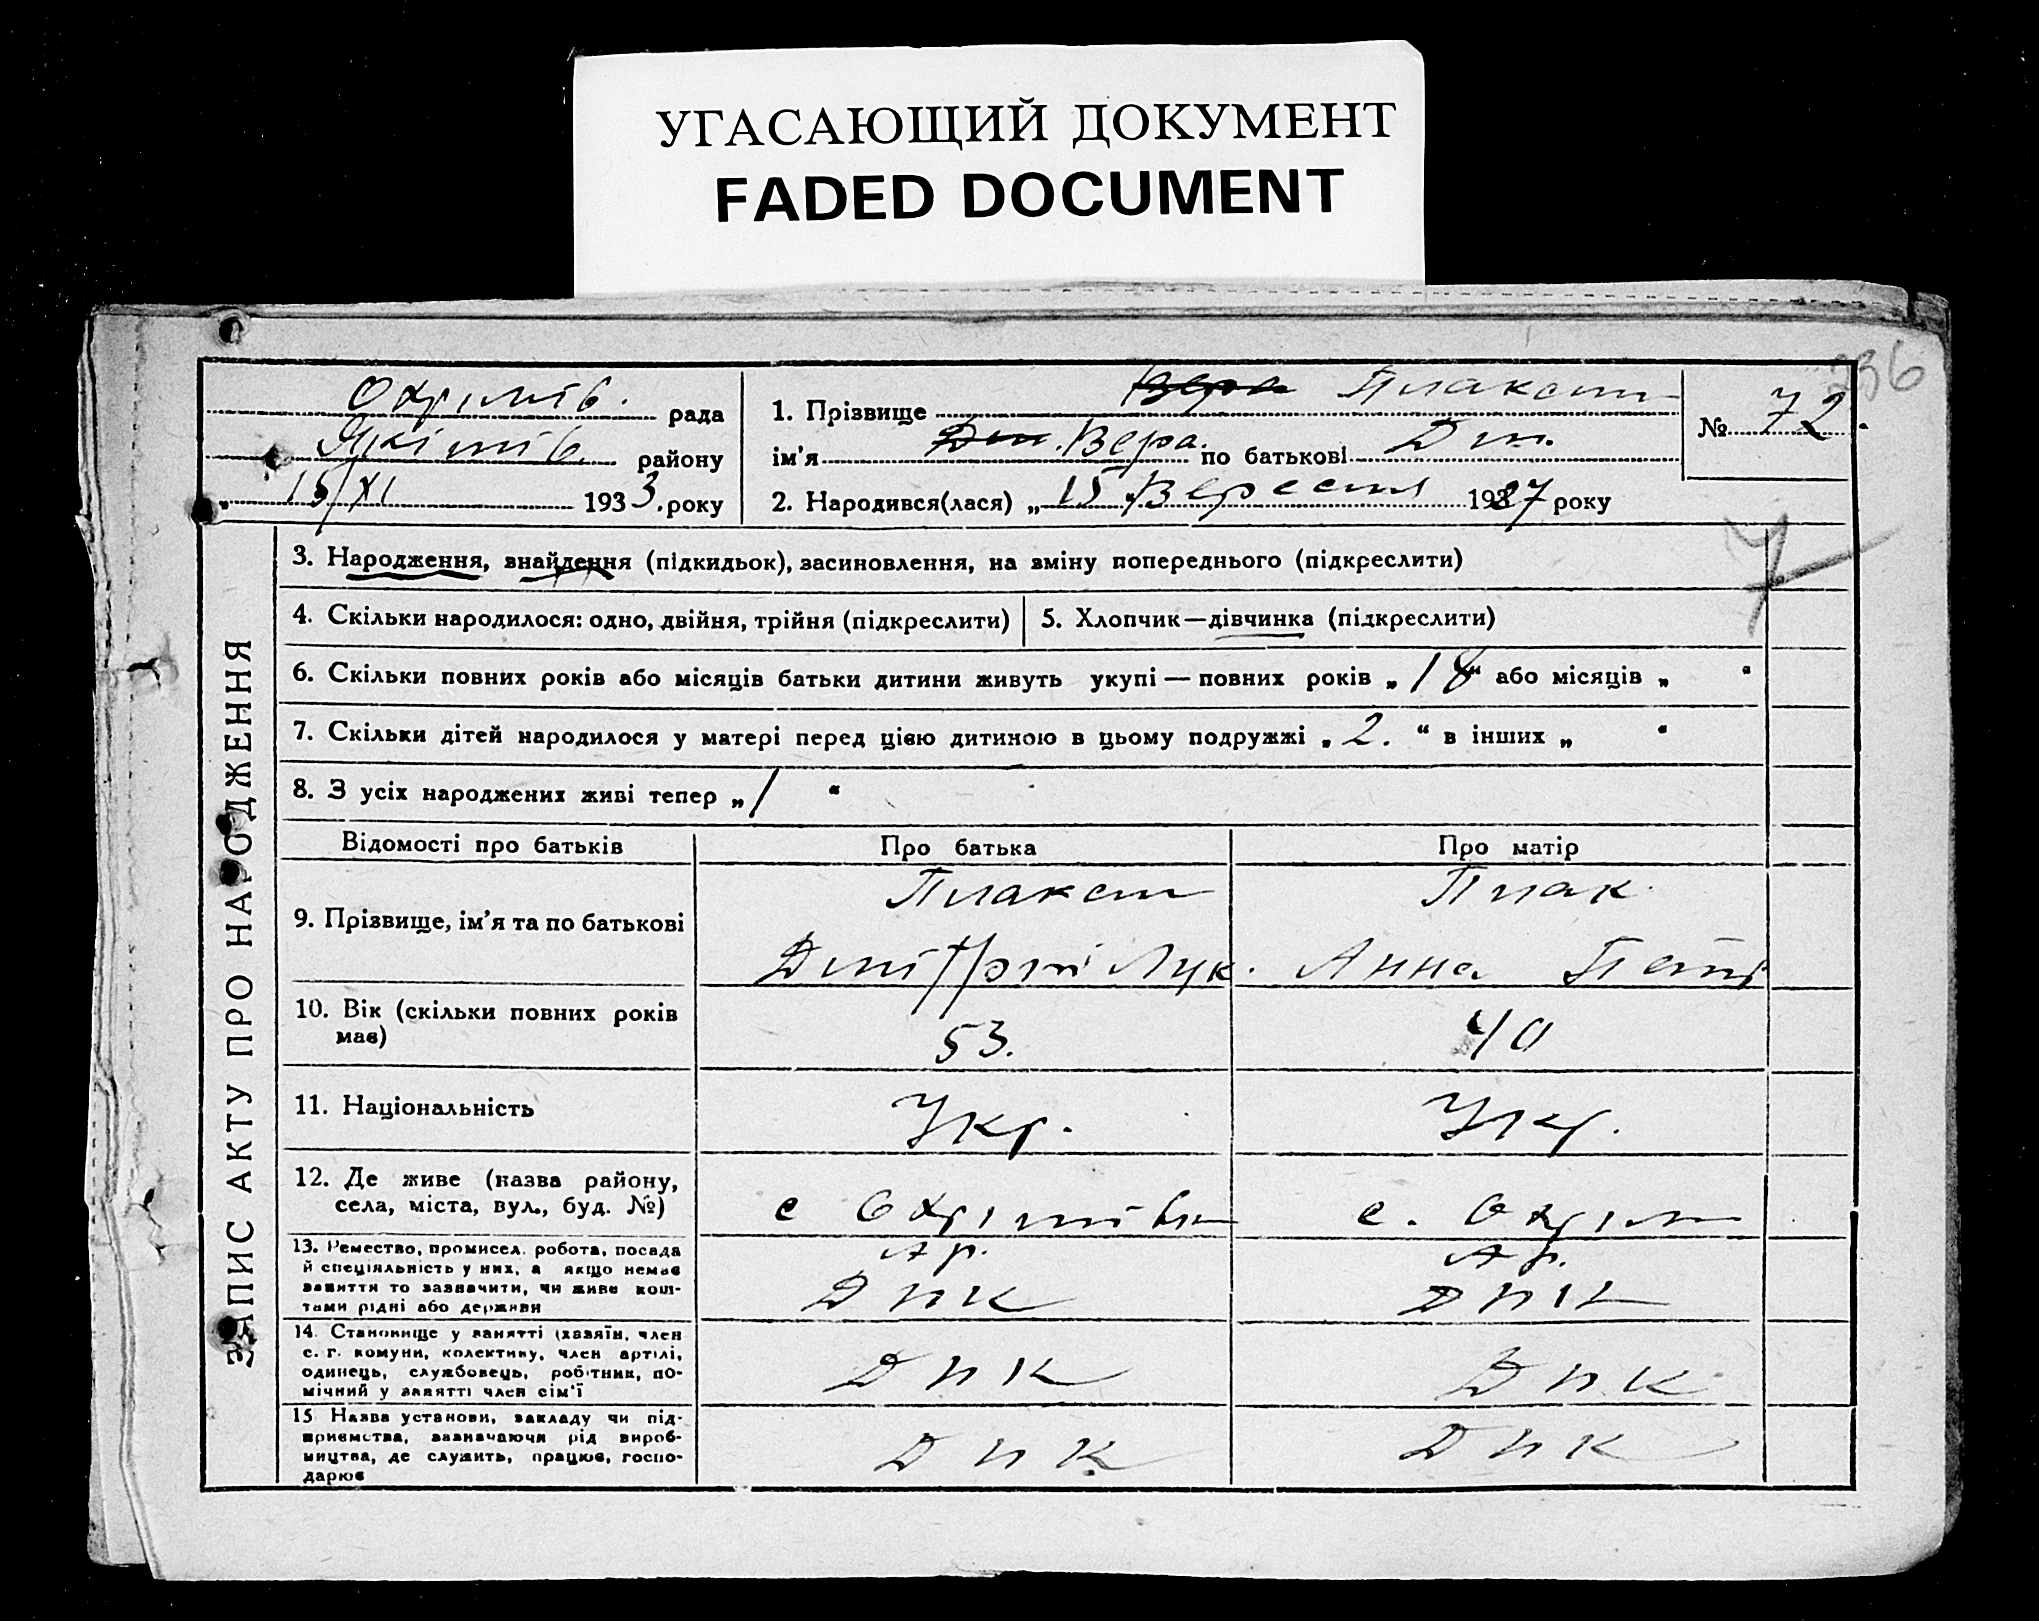 УГАСАЮЩИЙ ДОКУМЕНТ
FADED DOCUMENT
236
Охрімів. рада
Якімів. району
„ 15/XI 1933. року
1. Прізвище Вера Плаксин
ім'я Дм. Вера. по батькові Дм.
2. Народився(лася) „ 15 " Вересня 1927 року
№ 72.
7
ЗАПИС АКТУ ПРО НАРОДЖЕННЯ
3. Народження, знайдення (підкидьок), засиновлення, на зміну попереднього (підкреслити)
4. Скільки народилося: одно, двійня, трійня (підкреслити)
5. Хлопчик—дівчинка (підкреслити)
6. Скільки повних років або місяців батьки дитини живуть укупі — повних років „ 18 “ або місяців „ “
7. Скільки дітей народилося у матері перед цією дитиною в цьому подружжі „ 2. “ в інших „ “
8. З усіх народжених живі тепер „ 1 “
Відомості про батьків Про батька Про матір
9. Прізвище, ім'я та по батькові
Плаксин
Дмітрій Лук.
Плак.
Анна
10. Вік (скільки повних років
має)
53.
40
11. Національність
Укр.
Укр.
12. Де живе (назва району,
села, міста, вул., буд. №)
с Охрімівк
с. Охрім
13. Ремество, промисел, робота, посада
й спеціяльність у них, а якщо немає
заняття то зазначити, чи живе кош-
тами рідні або держави
Ар.
ДНК
Ар.
ДНК
14. Становище у занятті (хазяїн, член
с. г. комуни, колективу, член артілі,
одинець, службовець, робітник, по-
мічний у занятті член сім'ї
ДНК
ДНК
15 Назва установи, закладу чи під-
приємства, зазначаючи рід вироб-
ництва, де служить, працює, госпо-
дарює
ДНК
ДНК